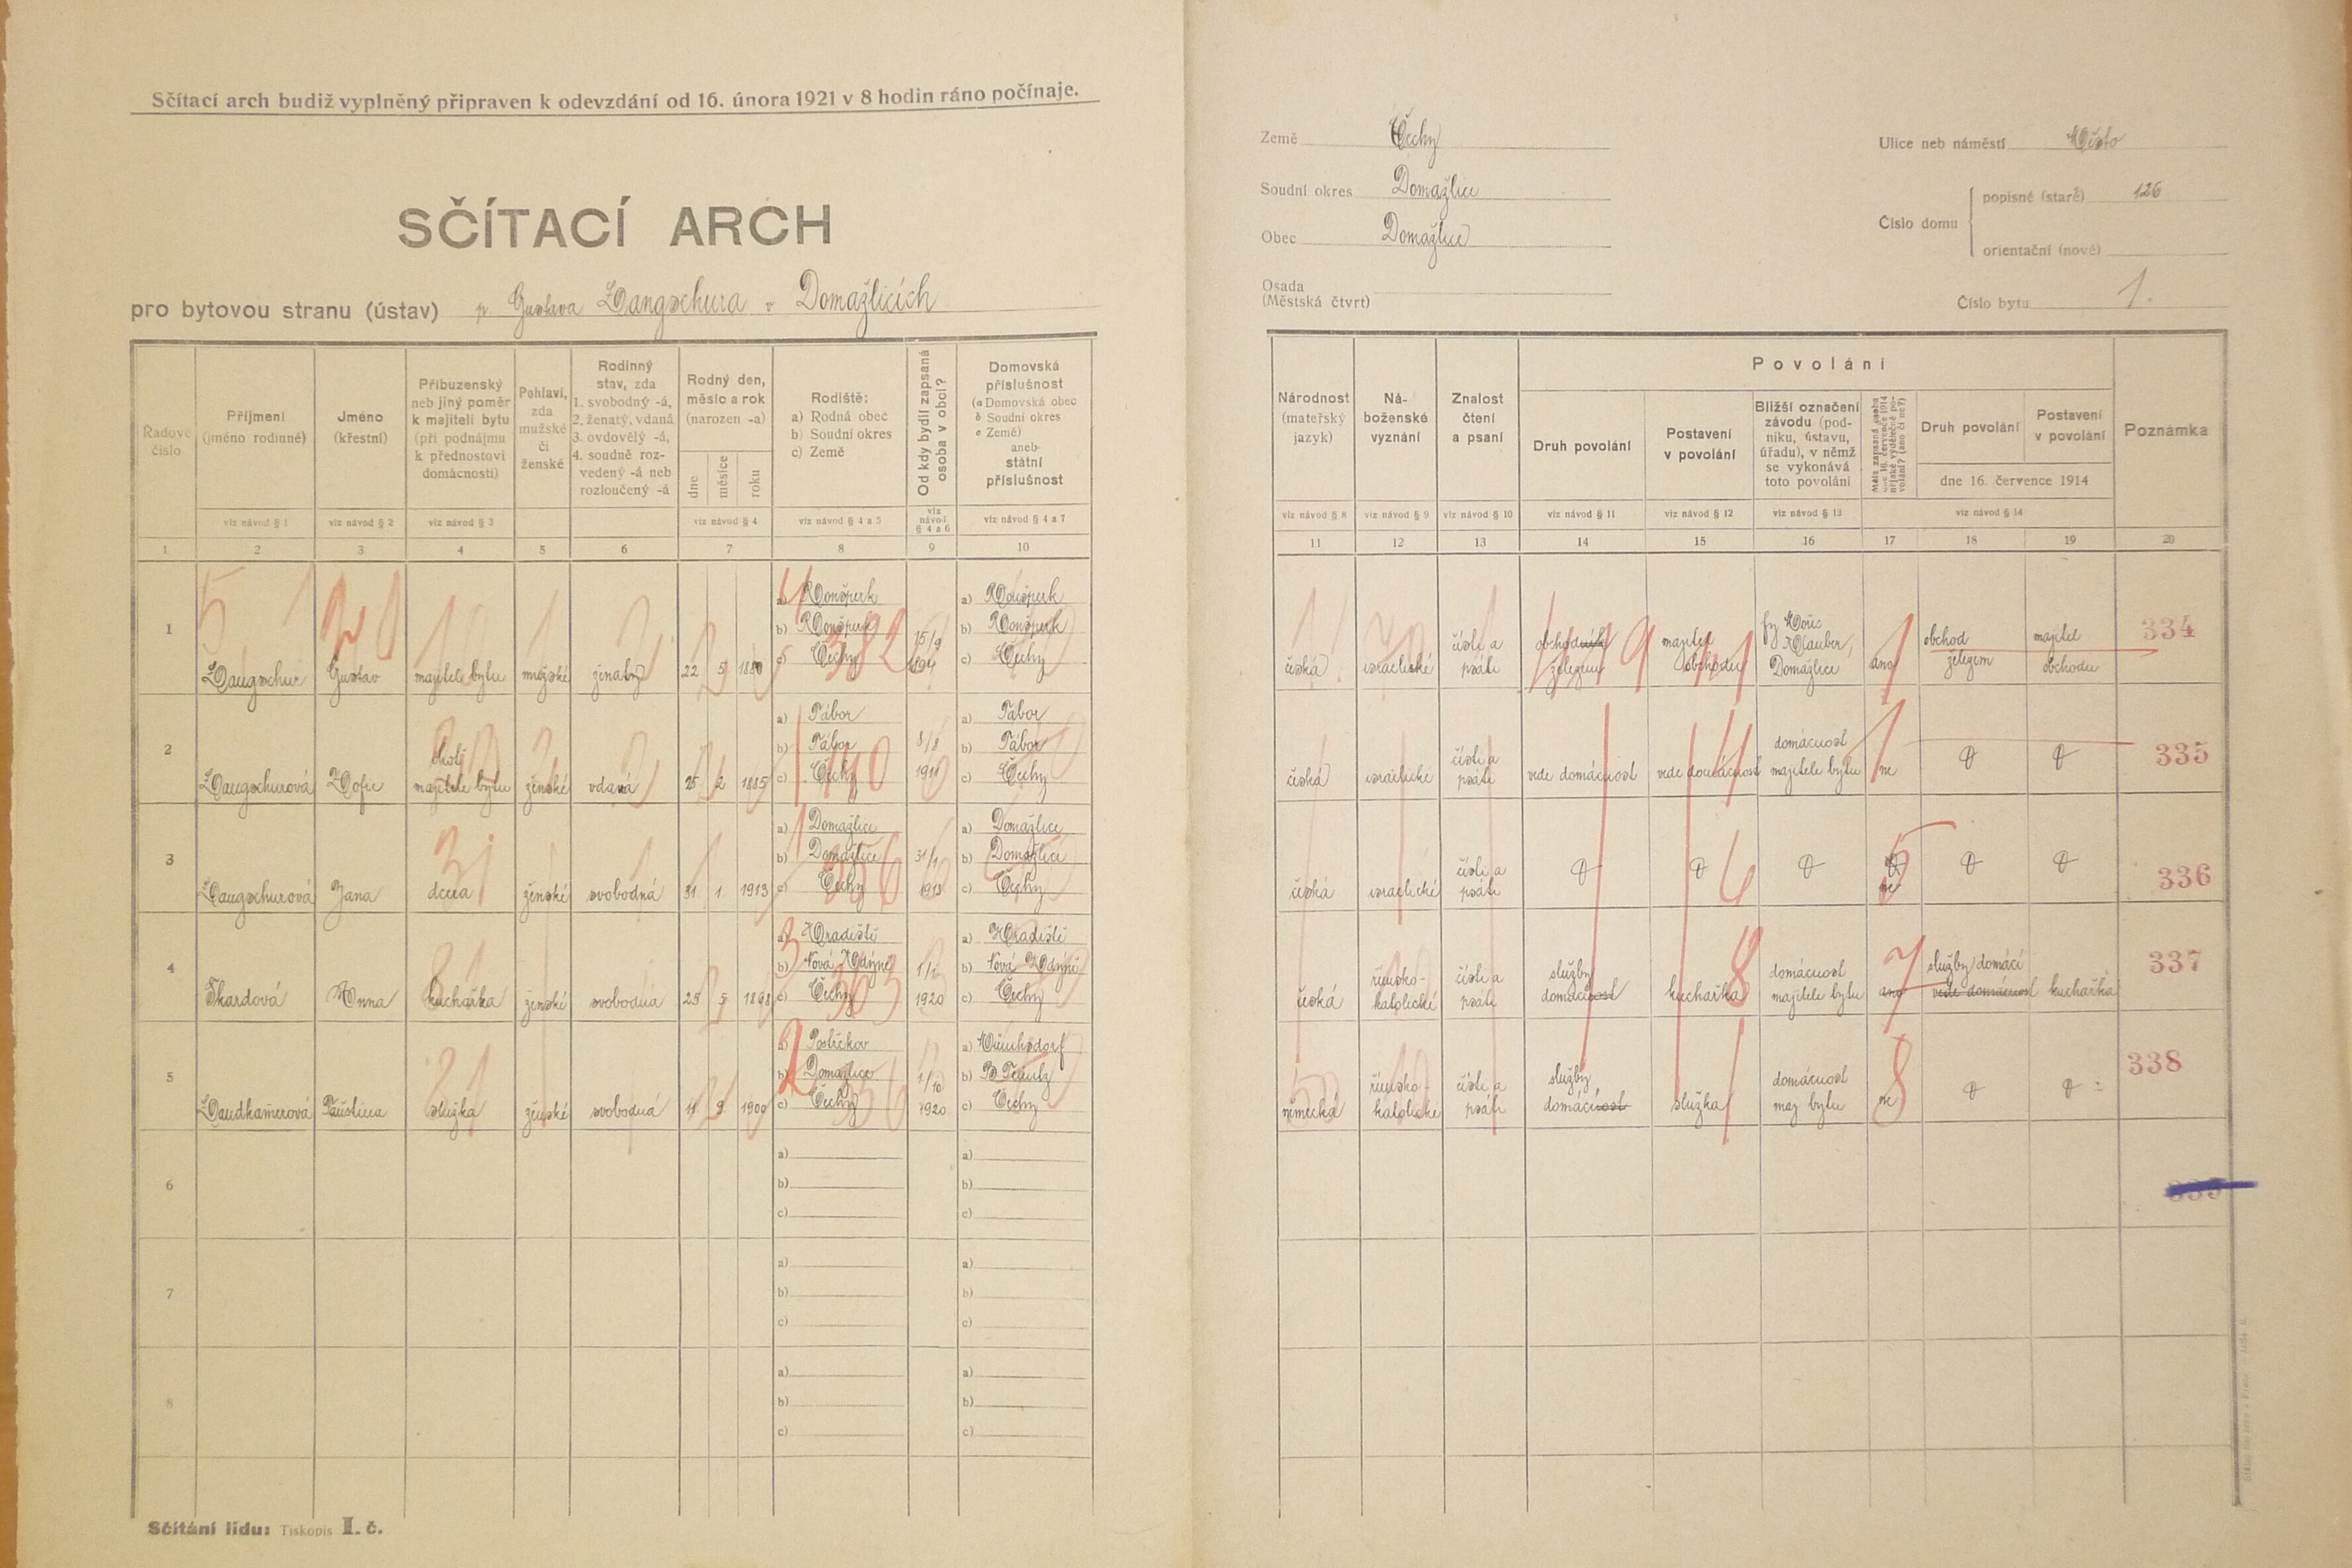 Sčítací arch budiž vyplněný připraven k odevzdání od 16. února 1921 v 8 hodin ráno počínaje.
SČÍTACÍ ARCH
pro bytovou stranu (ústav) p. Gustava Langschura v Domažlicích
Země Čechy
Soudní okres Domažlice
Obec Domažlice
Osada
(Městská čtvrť)
Ulice neb náměstí Město
Číslo domu
popisné (staré) 126
orientační (nové)
Číslo bytu 1.
Řadové číslo
Příjmení (jméno rodinné)
Jméno (křestní)
Příbuzenský neb jiný poměr k majiteli bytu (při podnájmu k přednostovi domácnosti)
Pohlaví, zda mužské či ženské
Rodinný stav, zda 1. svobodný -á, 2. ženatý, vdaná 3. ovdovělý -á, 4. soudně rozvedený -á neb rozloučený -á
Rodný den, měsíc a rok (narozen -a)
dne měsíce roku
Rodiště: a) Rodná obec b) Soudní okres c) Země
Od kdy bydlí zapsaná osoba v obci?
Domovská příslušnost (a Domovská obec b Soudní okres c Země) aneb státní příslušnost
Národnost (mateřský jazyk)
Náboženské vyznání
Znalost čtení a psaní
Povolání
Druh povolání
Postavení v povolání
Bližší označení závodu (podniku, ústavu, úřadu), v němž se vykonává toto povolání
Druh povolání
Postavení v povolání
dne 16. července 1914
Poznámka
viz návod § 1 viz návod § 2 viz návod § 3 viz návod § 4 viz návod § 4 a 5 viz návod § 4 a 6 viz návod § 4 a 7
viz návod § 8 viz návod § 9 viz návod § 10 viz návod § 11 viz návod § 12 viz návod § 13 viz návod § 14
1 2 3 4 5 6 7 8 9 10
11 12 13 14 15 16 17 18 19 20
1 Langschur Gustav majitel bytu mužské ženatý 22 5 1880
a) Ronšperk
b) Ronšperk
c) Čechy
15/9
a) Ronšperk
b) Ronšperk
c) Čechy
česká israelitské čísti a psáti obchodník železem majitel obchodu Domažlice ano obchod železem majitel obchodu 334
2 Langschurová Žofie choť majitele bytu ženské vdaná 25 2 1885
a) Tábor
b) Tábor
c) Čechy
8/8 1911
a) Tábor
b) Tábor
c) Čechy
česká israelitské čísti a psáti vede domácnost vede domácnost domácnost majitele bytu ne 335
3 Langschurová Jana dcera ženské svobodná 31 1 1913
a) Domažlice
b) Domažlice
c) Čechy
31/1 1913
a) Domažlice
b) Domažlice
c) Čechy
česká israelitské čísti a psáti ne 336
4 Škardová Anna kuchařka ženské svobodná 25 5 1898
a) Hradiště
b) Nová Kdýně
c) Čechy
1920
a) Hradiště
b) Nová Kdýně
c) Čechy
česká římsko-katolické čísti a psáti služby domácnost kuchařka domácnost majitele bytu ano služby domácí vede domácnost kuchařka 337
5 Faustina služka ženské svobodná 11 9 1900
a) Postřekov
b) Domažlice
c) Čechy
1/10 1920
a) Münchsdorf
c) Čechy
německá římsko-katolické čísti a psáti služby domácnost služka domácnost maj bytu ne 338
6 a) b) c) a) b) c)
7 a) b) c) a) b) c)
8 a) b) c) a) b) c)
Sčítání lidu: Tiskopis I. č.